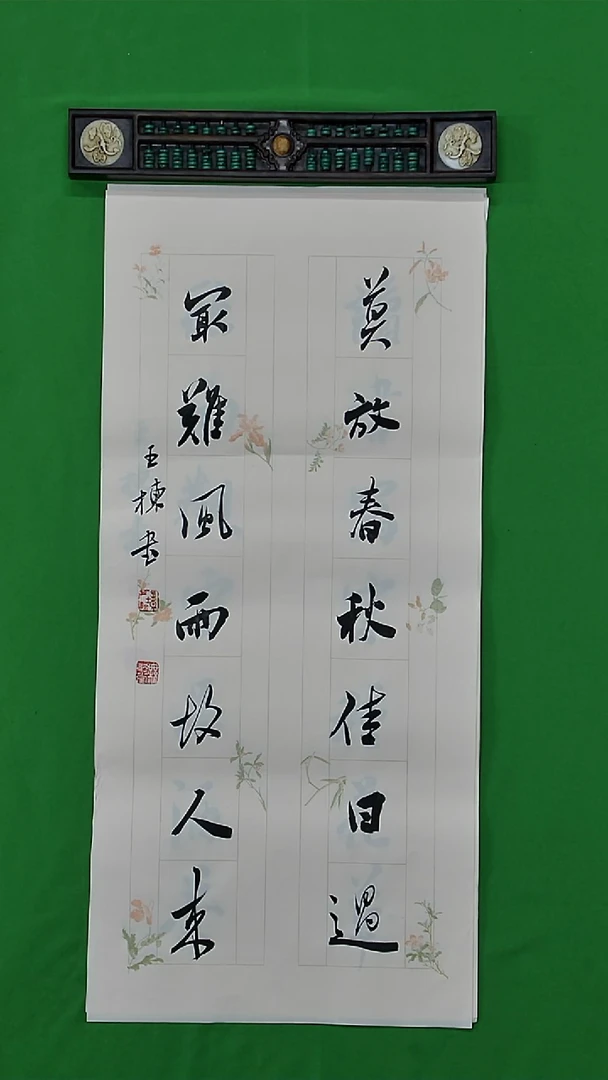 莫放春秋佳日過
最難風雨故人来
王棟書